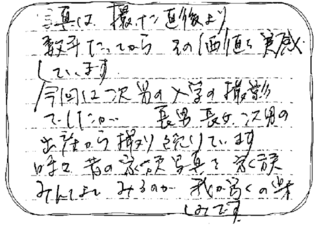 写真は、撮った直後より
数年たってから その価値を実感
しています
今回は二次男の入学の撮影
でしたが 長男 長女 次男の
出産から撮り続けています
時々 昔の家族写真を家族
みんなでみるのが 我が家の楽
しみです